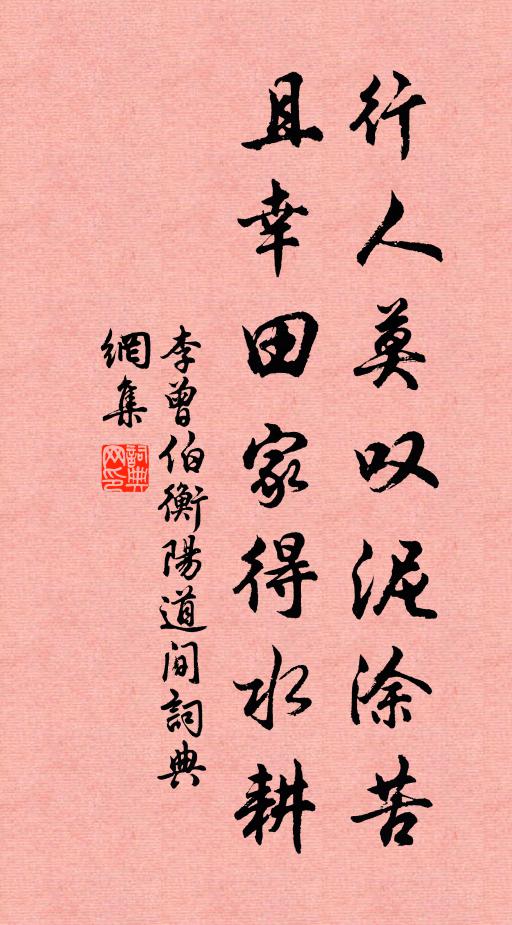 行人莫叹泥涂苦
且幸田家得水耕
李曾伯衡陽道间詞典
網集
詞典网印